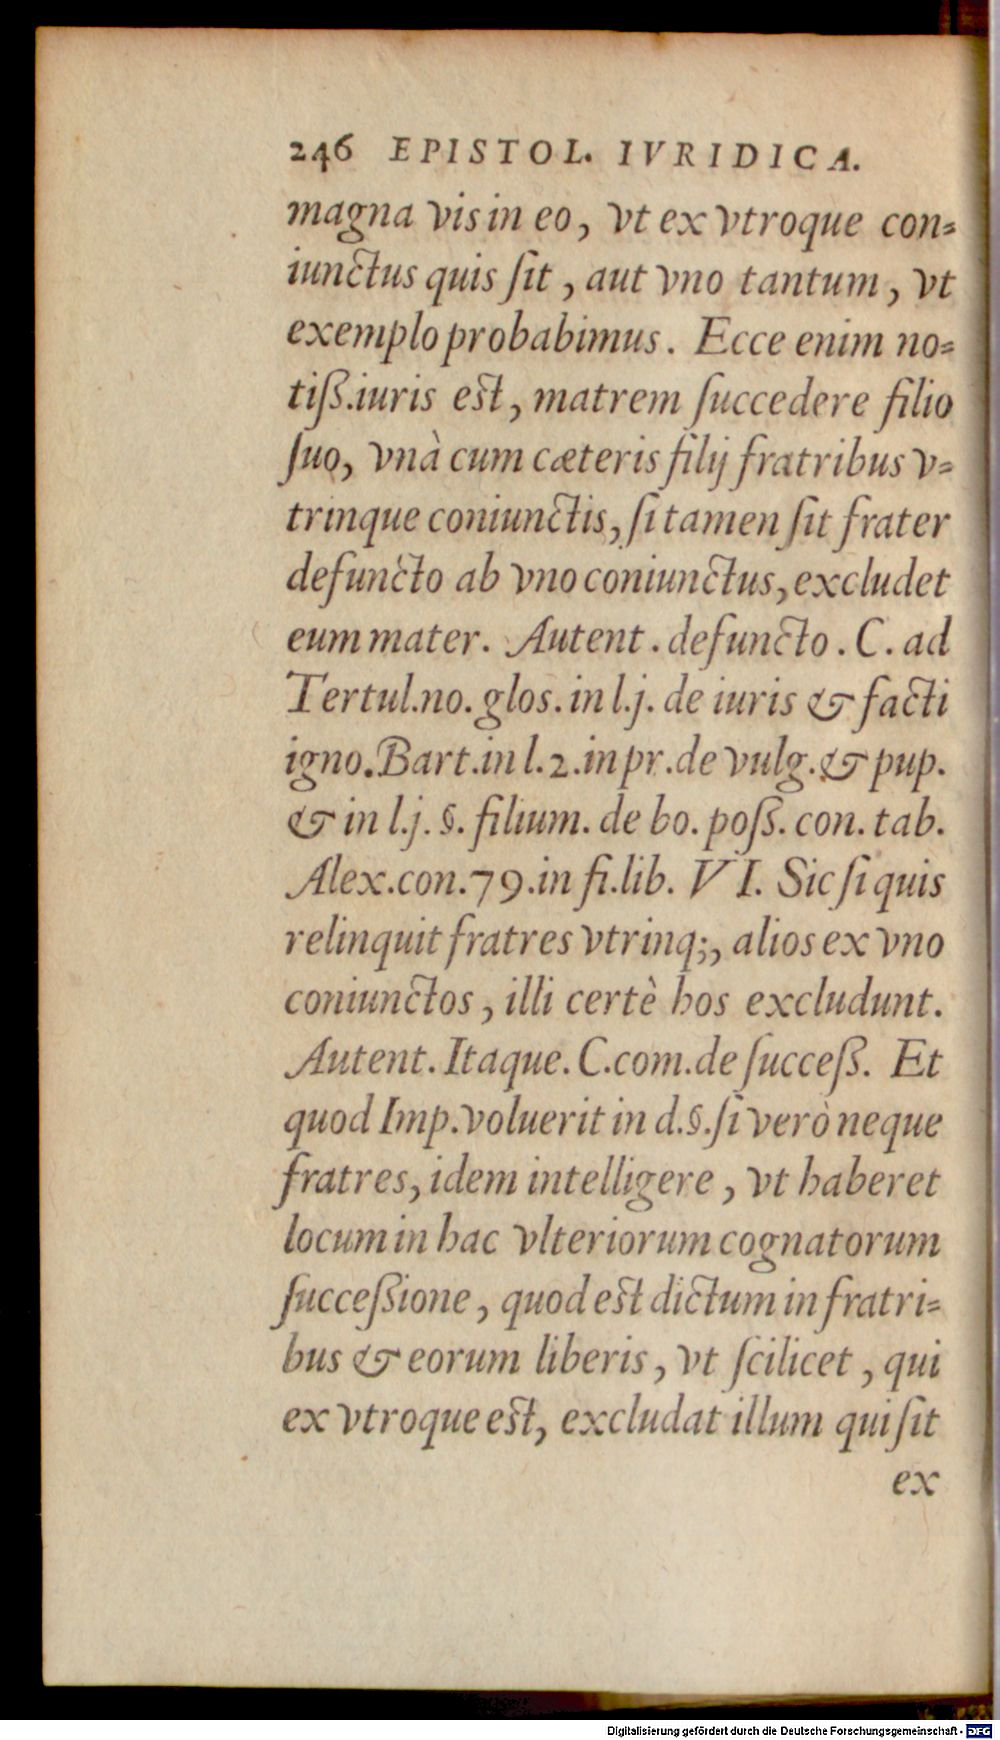 246 EPISTOL. IVRIDICA.
magna vis in eo, vt ex vtroque con=
iunctus quis ſit, aut vno tantum, vt
exemplo probabimus. Ecce enim no=
tiß.iuris est, matrem ſuccedere filio
ſuo, vnà cum cæteris filij fratribus v=
trinque coniunctis, ſi tamen ſit frater
defuncto ab vno coniunctus, excludet
eum mater. Autent. defuncto. C. ad
Tertul.no. glos. in l.j. de iuris & facti
igno. Bart.in l.2.in pr.de vulg.& pup.
& in l.j. §. filium. de bo. poß. con. tab.
Alex.con.79.in fi.lib. VI. Sic ſi quis
relinquit fratres vtrinq;, alios ex vno
coniunctos, illi certè hos excludunt.
Autent. Itaque. C.com.de ſucceß. Et
quod Imp.voluerit in d.§.ſi verò neque
fratres, idem intelligere, vt haberet
locum in hac vlteriorum cognatorum
ſucceßione, quod est dictum in fratri=
bus & eorum liberis, vt ſcilicet, qui
ex vtroque est, excludat illum qui ſit
ex
Digitalisierung gefördert durch die Deutsche Forschungsgemeinschaft - DFG